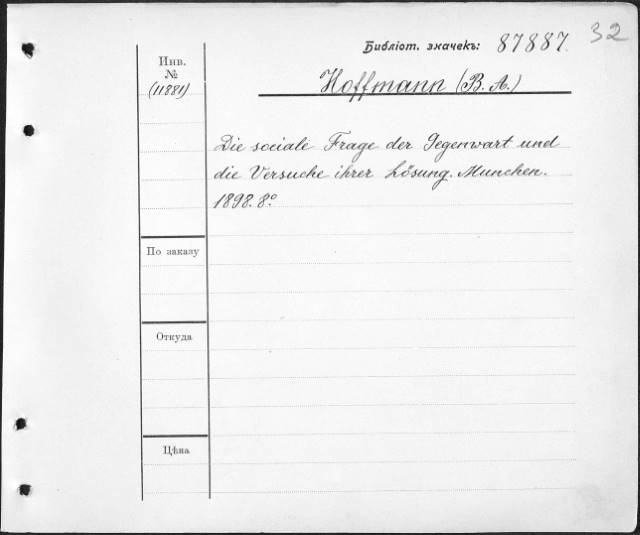 32
Библіот. значекъ: 87887.
Инв.
№
(11881)
Hoffmann (B. A.)
Die sociale Frage der Gegenwart und
die Versuche ihrer Lösung. Munchen.
1898. 8°
По заказу
Откуда
Цѣна